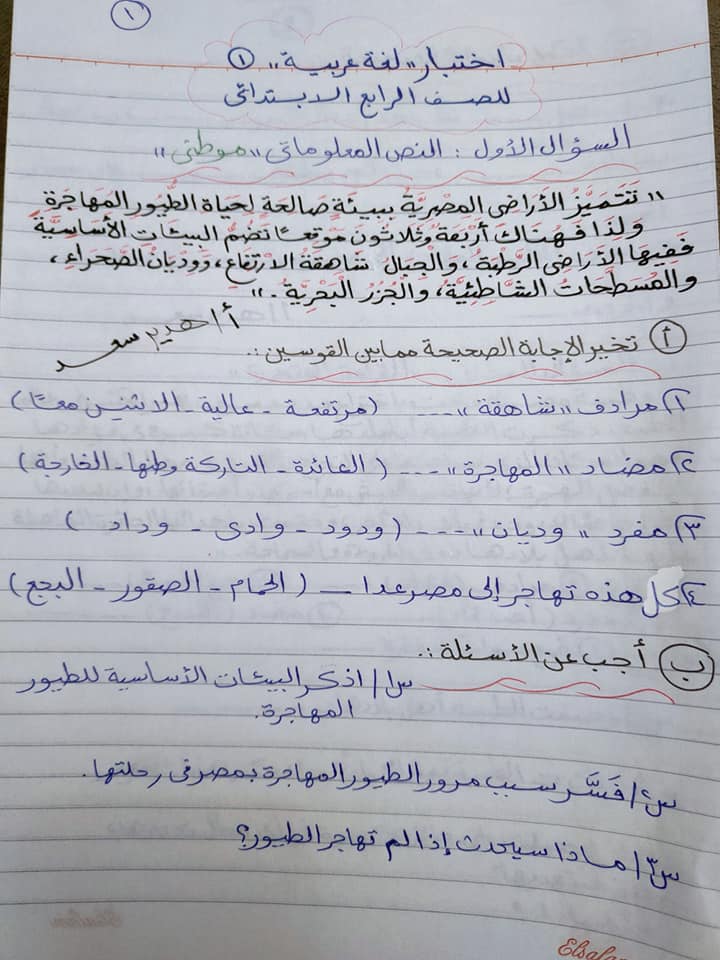 ١
اختبار "لغة عربية" ١
للصف الرابع الابتدائى
السؤال الأول : النص المعلوماتى "موطنى"
" تَتَمَيَّزُ الأَرَاضِى المِصْرِيَّةُ بِبِيئَةٍ صَالِحَةٍ لِحَيَاةِ الطُّيُورِ المُهَاجَرَةِ
وَلِذَا فَهُنَاكَ أَرْبَعَةٌ وَثَلَاثُونَ مَوْقِعًا تَضُمُّ البِيئَاتِ الأَسَاسِيَّةَ
فَفِيهَا الأَرَاضِى الرَّطْبَةُ ، وَالجِبَالُ شَاهِقَةُ الارْتِفَاعِ ، وَوِدْيَانُ الصَّحْرَاءِ ،
وَالمُسَطَّحَاتُ الشَّاطِئِيَّةُ ، وَالجُزُرُ البَحْرِيَّةُ . "
أ/ هدير سعد
أ تخير الإجابة الصحيحة ممابين القوسين :.
١) مرادف "شاهقة" .... (مرتفعة - عالية - الاثنين معًا)
٢) مضاد "المهاجرة" .... (العائدة - التاركة وطنها - الخارجة)
٣) مفرد "وديان" .... (ودود - وادى - وداد )
٤) كل هذه تهاجر إلى مصر عدا ... (الحمام - الصقور - البجع)
ب أجب عن الأسئلة :.
س١/ اذكر البيئات الأساسية للطيور
المهاجرة.
س٢/ فَسَّر سبب مرور الطيور المهاجرة بمصر فى رحلتها.
س٣/ ماذا سيحدث إذا لم تهاجر الطيور؟
Elsalam